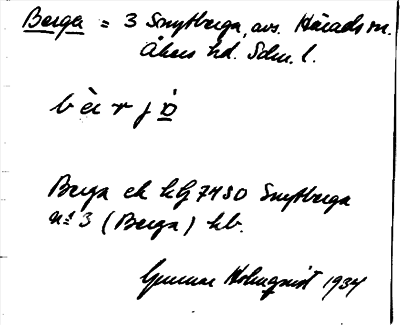 Berga = 3 Smytberga, avs. Härads sn.
Åkers hd. Sdm. l.
bèrjò
Berga ek hfl 7480 Smytberga
nº 3 (Berga) hb.
Gunnar Holmquist 1934